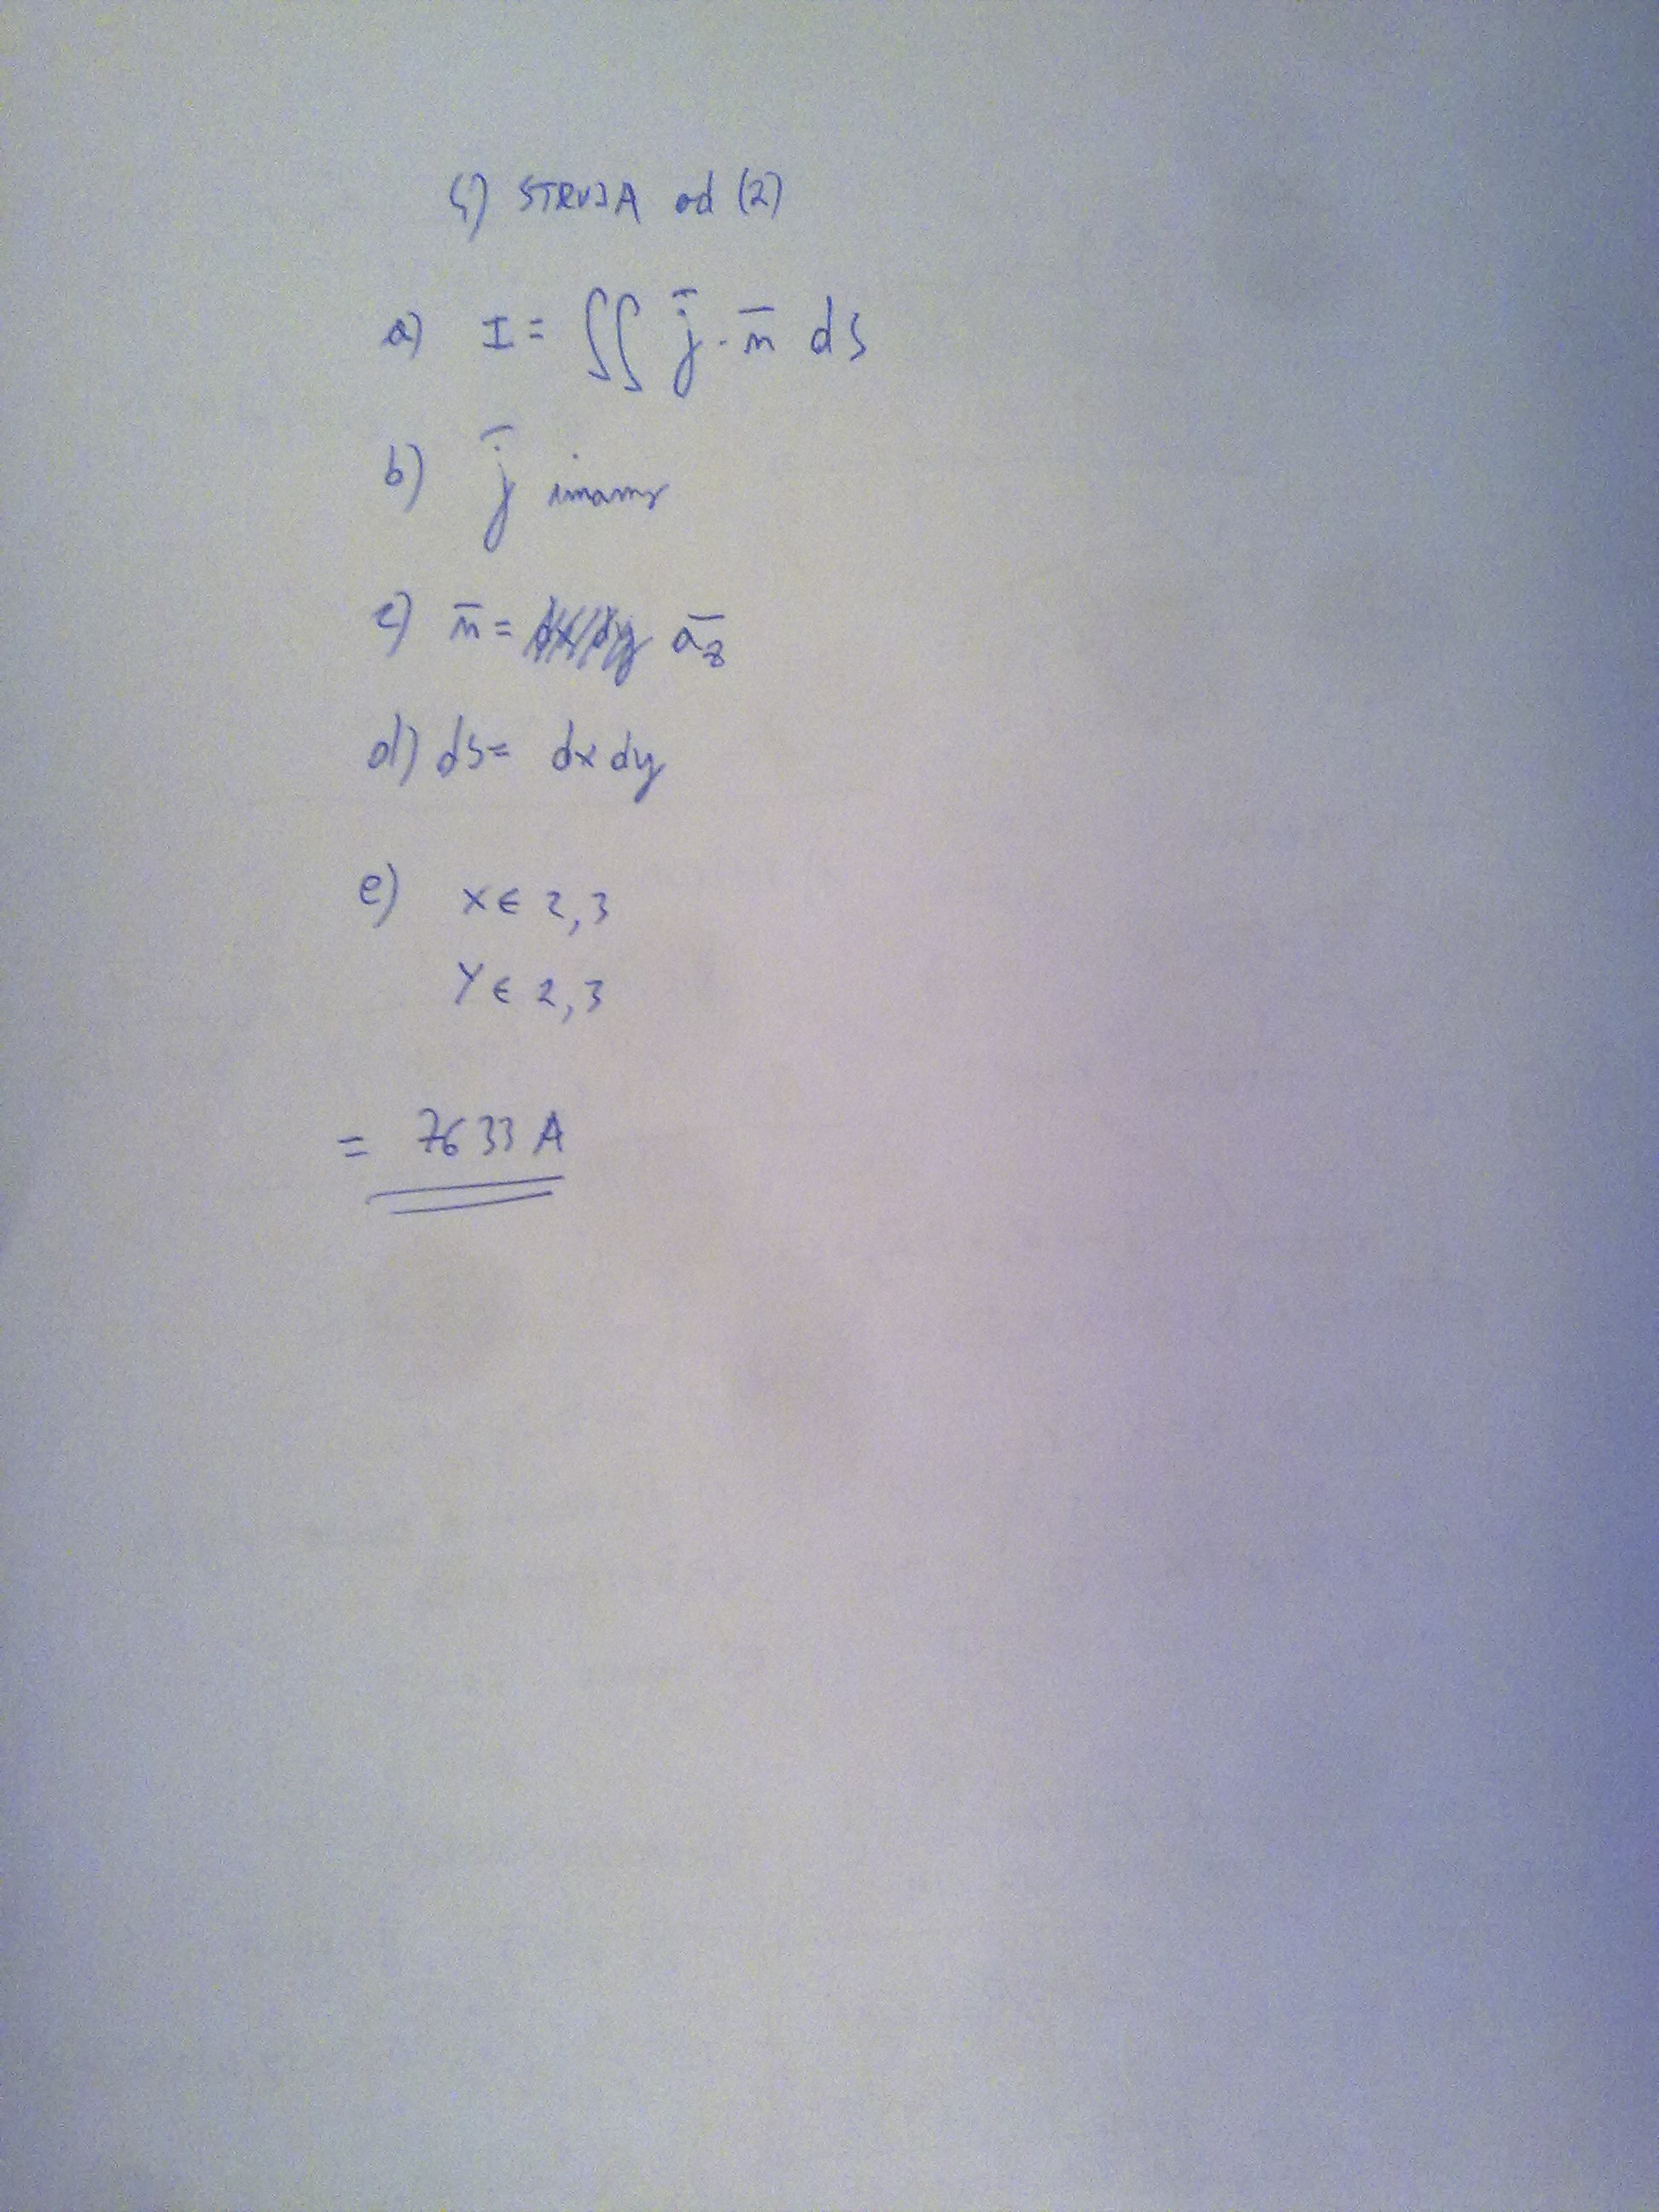 4) STRUJA od (2)
a) I = ∬ j̄ · n̄ dS
b) j̄ imamo
c) n̄ = a̅z
d) dS = dx dy
e) x ∈ 2,3
y ∈ 2,3
= 7633 A